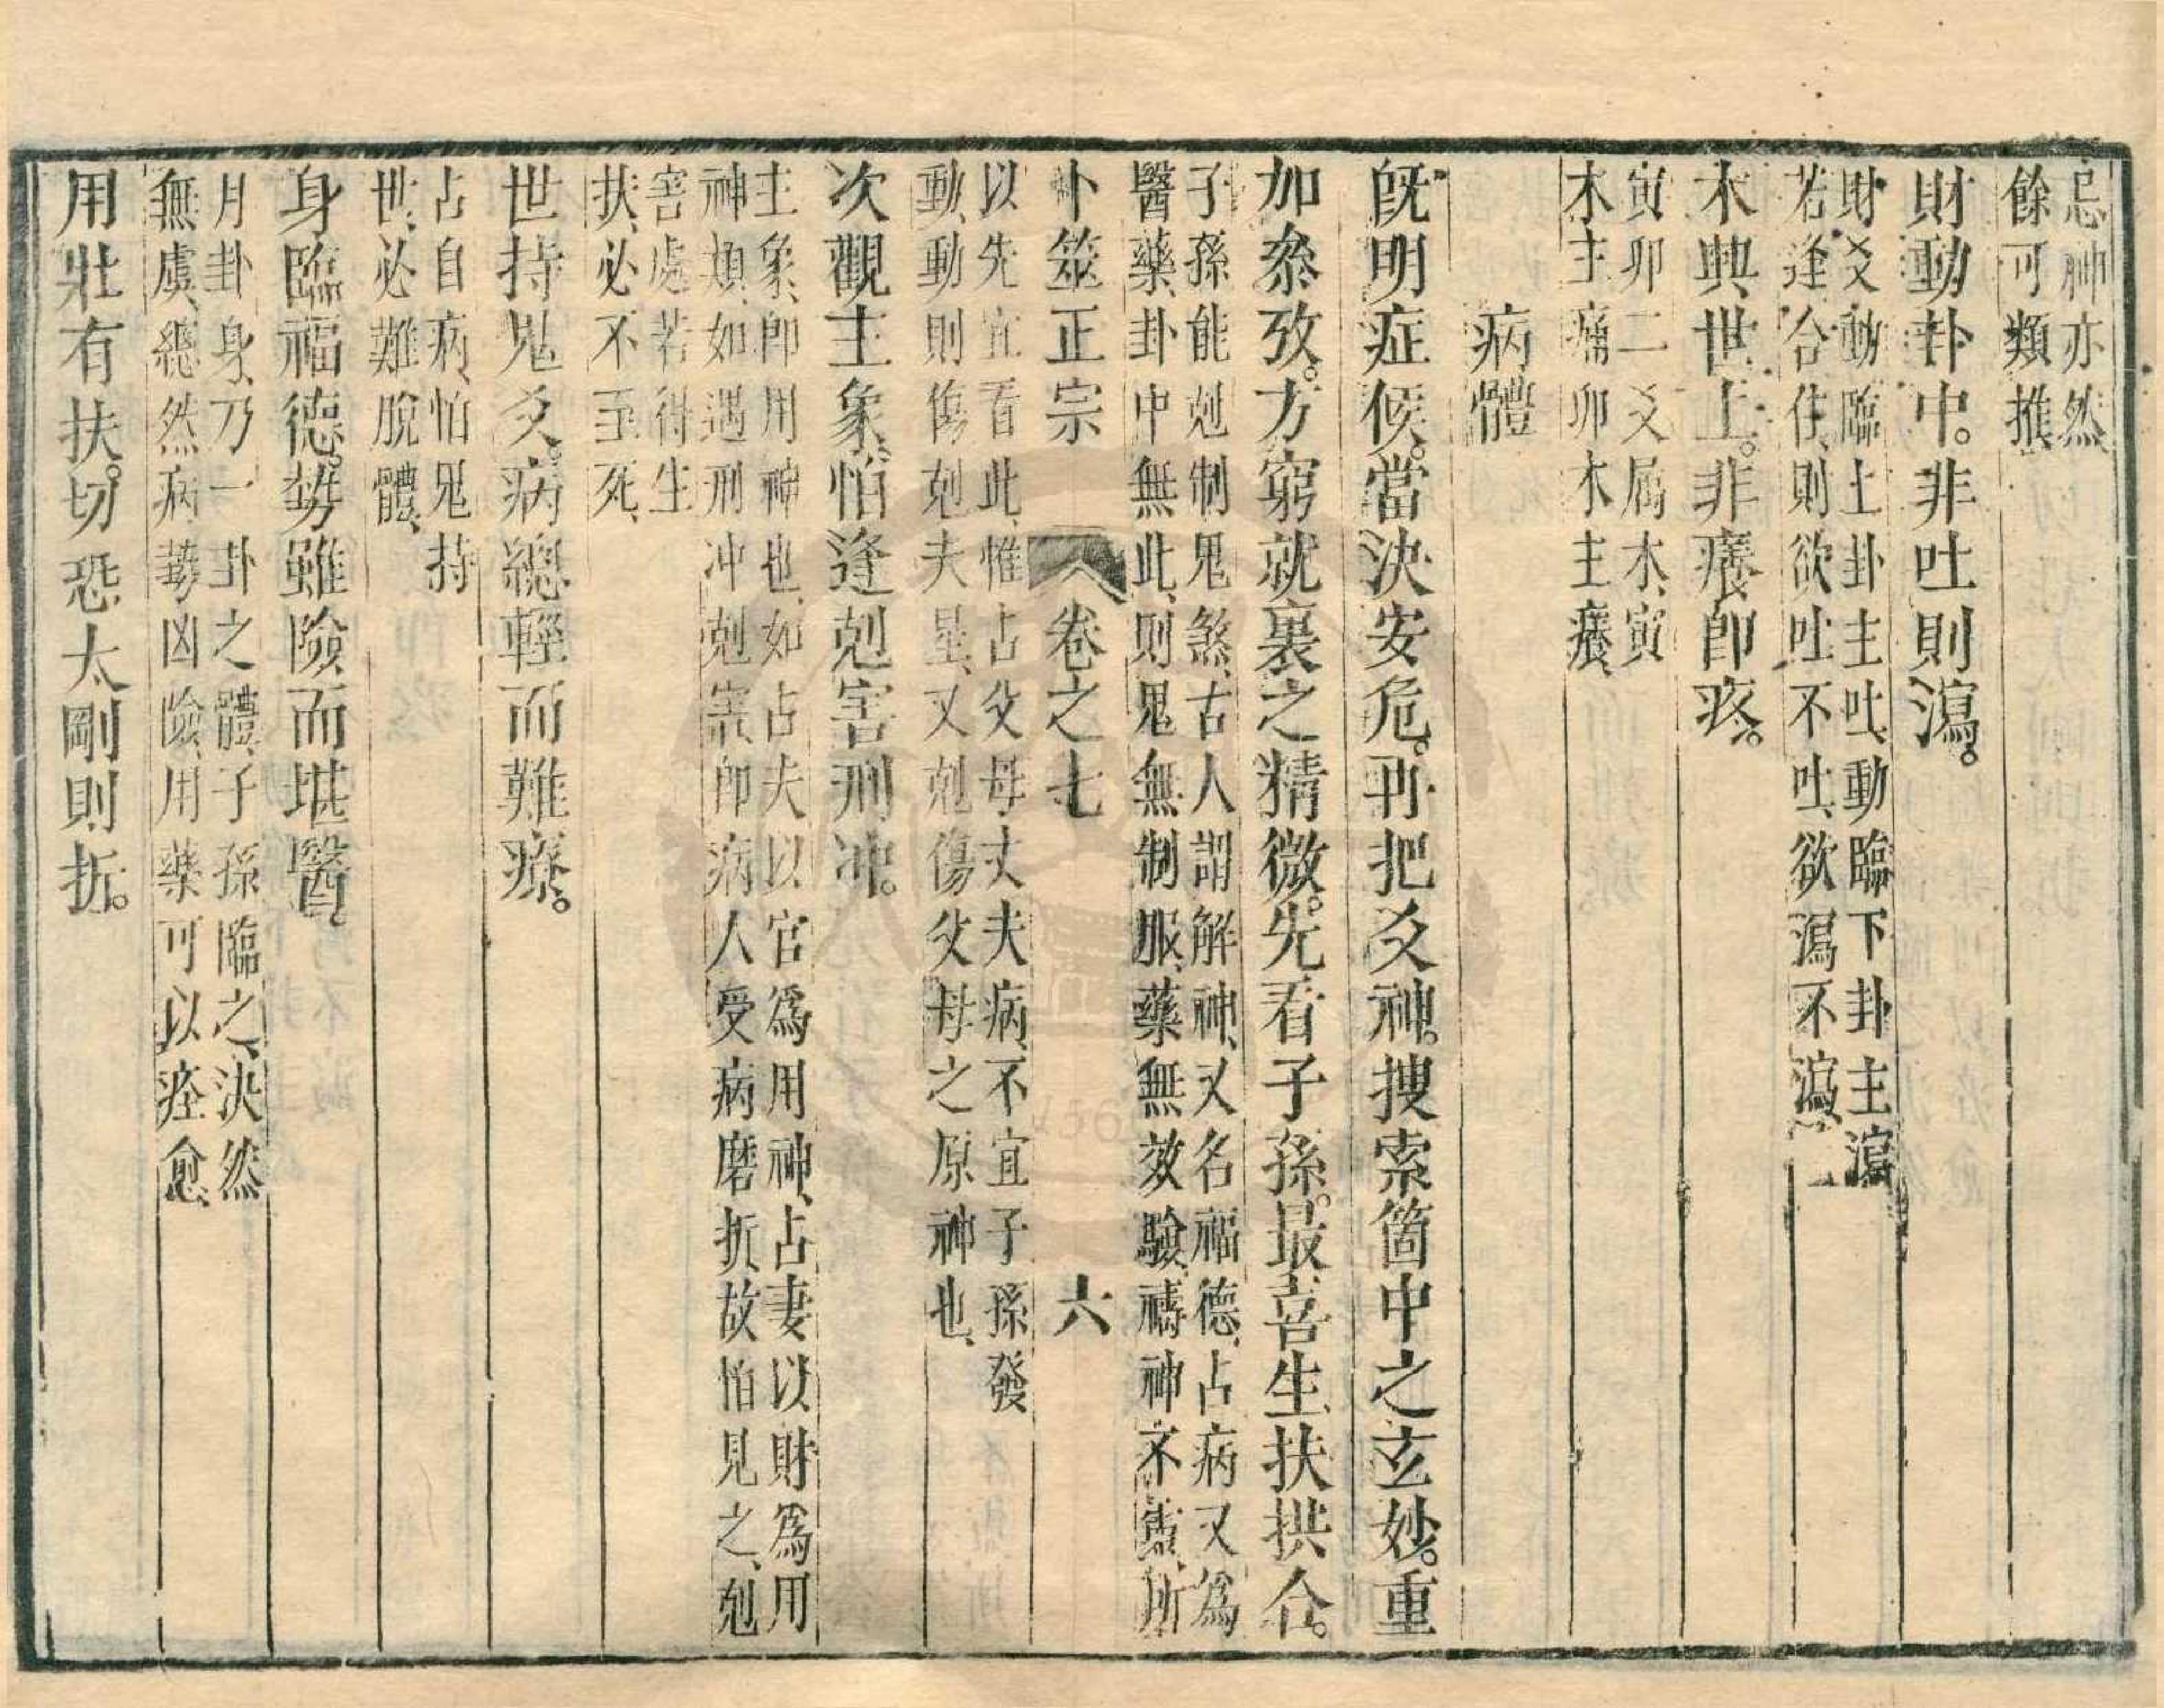 忌神亦然
餘可類推
財動卦中。非吐則瀉。
財爻動臨上卦主吐、動臨下卦主瀉
若逢合住、則欲吐不吐、欲瀉不瀉、
木興世上。非癢即疼。
寅卯二爻属木、寅
木主痛卯木主癢、
病體
既明症候。當決安危。再把爻神。搜索箇中之玄妙。重
加叅攷。方窮就裏之精微。先看子孫。最喜生扶拱合。
子孫能尅制鬼煞、古人謂解神、又名福德、占病又爲
醫藥、卦中無此、則鬼無制服、藥無效驗、禱神不靈、所
卜筮正宗 卷之七 六
以先宜看此、惟占父母丈夫病、不宜子孫發
動、動則傷尅夫星、又尅傷父母之原神也、
次觀主象、怕逢尅害刑冲。
主象、即用神也、如占夫以官爲用神、占妻以財爲用
神類、如遇刑冲尅害、即病人受病磨折、故怕見之、尅
害處若得生
扶、必不至死、
世持鬼爻。病總輕而難療。
占自病、怕鬼持
世、必難脫體、
身臨福德。勢雖險而堪醫。
月卦身、乃一卦之體、子孫臨之、決然
無虞、總然病勢凶險、用藥可以痊愈、
用壯有扶。切恐太剛則折。